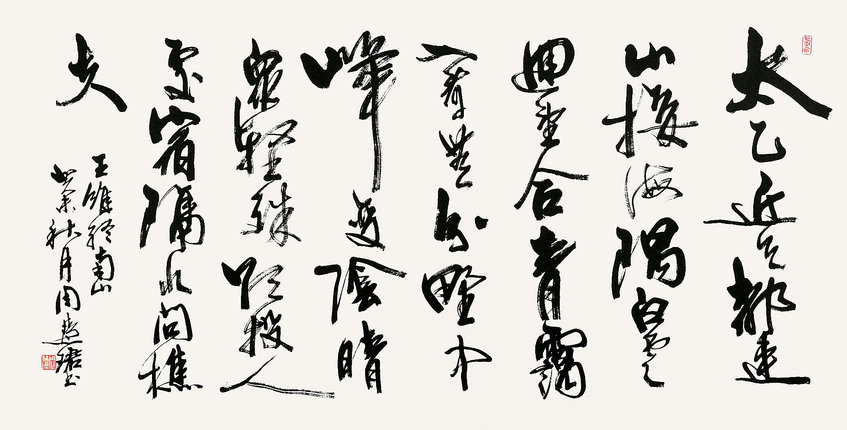 太乙近天都連
山接海隅白雲
迴望合青靄
入看無分野中
峰變陰晴
眾壑殊欲投人
處宿隔水問樵
夫
王維終南山
癸未秋月周慧珺書